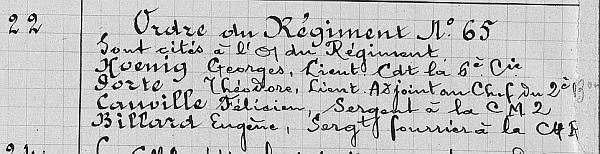 22 Ordre du Régiment N° 65
Sont cités à l'O/ du Régiment
Hoenig Georges, Lieut Cdt la 6è Cie
Porte Théodore, Lieut. Adjoint au Chef du 2è Bon
Canville Félicien, Sergent à la CM2
Billard Eugène, Sergt fourrier à la